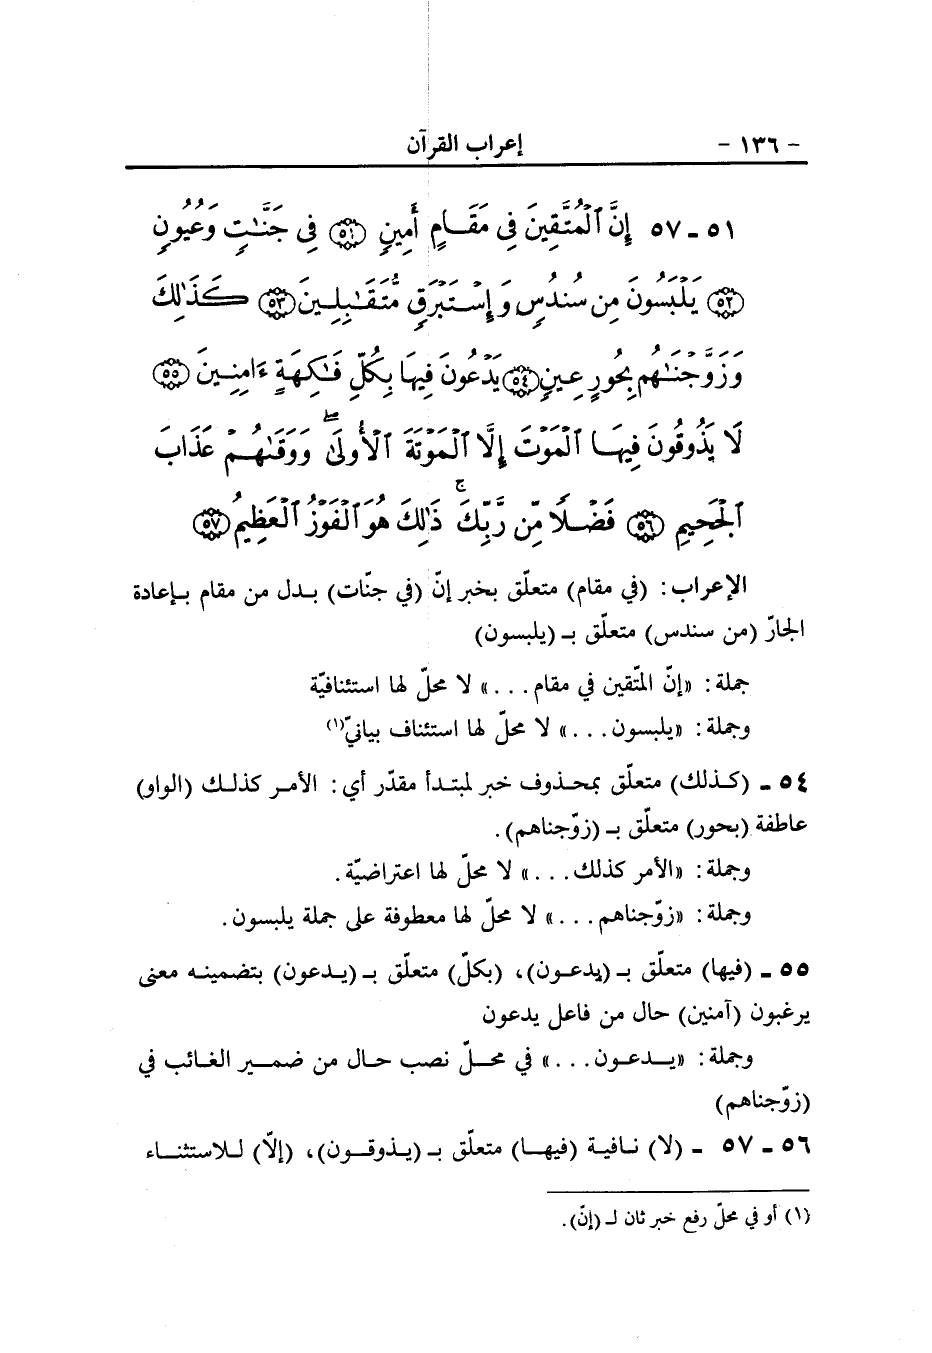 - ١٣٦ - إعراب القرآن
٥١ ـ ٥٧ إِنَّ ٱلْمُتَّقِينَ فِى مَقَامٍ أَمِينٍ ﴿٥١﴾ فِى جَنَّٰتٍ وَعُيُونٍ
﴿٥٢﴾ يَلْبَسُونَ مِن سُندُسٍ وَإِسْتَبْرَقٍ مُّتَقَٰبِلِينَ ﴿٥٣﴾ كَذَٰلِكَ
وَزَوَّجْنَٰهُم بِحُورٍ عِينٍ ﴿٥٤﴾ يَدْعُونَ فِيهَا بِكُلِّ فَٰكِهَةٍ ءَامِنِينَ ﴿٥٥﴾
لَا يَذُوقُونَ فِيهَا ٱلْمَوْتَ إِلَّا ٱلْمَوْتَةَ ٱلْأُولَىٰ ۖ وَوَقَىٰهُمْ عَذَابَ
ٱلْجَحِيمِ ﴿٥٦﴾ فَضْلًا مِّن رَّبِّكَ ۚ ذَٰلِكَ هُوَ ٱلْفَوْزُ ٱلْعَظِيمُ ﴿٥٧﴾
الإعراب: (في مقام) متعلّق بخبر إنّ (في جنّات) بدل من مقام بإعادة
الجارّ (من سندس) متعلّق بـ (يلبسون)
جملة: «إنّ المتّقين في مقام...» لا محلّ لها استئنافيّة
وجملة: «يلبسون...» لا محلّ لها استئناف بيانيّ(١)
٥٤ ـ (كذلك) متعلّق بمحذوف خبر لمبتدأ مقدّر أي: الأمر كذلك (الواو)
عاطفة (بحور) متعلّق بـ (زوّجناهم).
وجملة: «الأمر كذلك...» لا محلّ لها اعتراضيّة.
وجملة: «زوّجناهم...» لا محلّ لها معطوفة على جملة يلبسون.
٥٥ ـ (فيها) متعلّق بـ (يدعون)، (بكلّ) متعلّق بـ (يدعون) بتضمينه معنى
يرغبون (آمنين) حال من فاعل يدعون
وجملة: «يدعون...» في محلّ نصب حال من ضمير الغائب في
(زوّجناهم)
٥٦ ـ ٥٧ ـ (لا) نافية (فيها) متعلّق بـ (يذوقون)، (إلّا) للاستثناء
(١) أو في محلّ رفع خبر ثان لـ (إنّ).